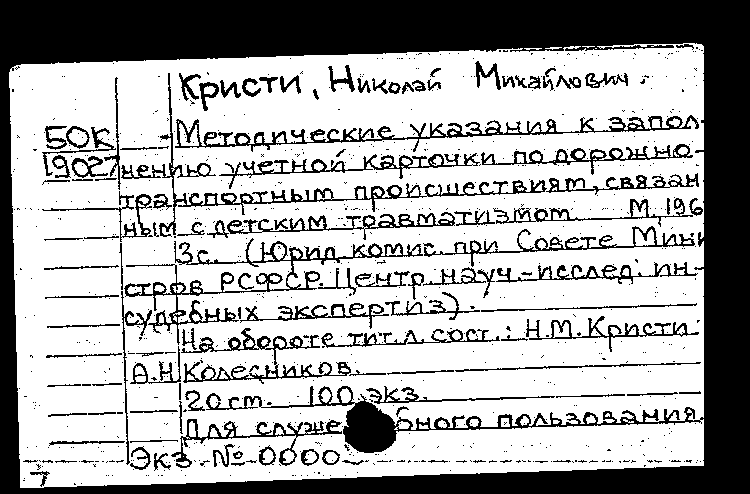 Кристи, Николай Михайлович.
50К -Методические указания к запол-
19027 нению учетной карточки по дорожно-
транспортным происшествиям, связан-
ным с детским травматизмом. М., 196
3с. (Юрид. комис. при Совете Мини
стров РСФСР. Центр. науч.-исслед. ин-
судебных экспертиз).
На обороте тит. л. сост.: Н.М. Кристи.
А.Н. Колесников.
20 ст. 100 экз.
Для служе бного пользования.
Экз. № 0000